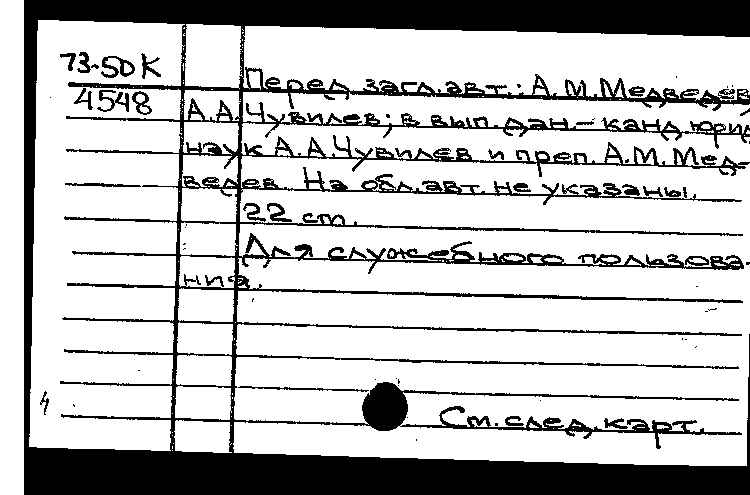 73-5DK
Перед загл. авт.: А.М. Медведев,
4548
А.А. Чувилев; в вып. дан. – канд. юрид.
наук А.А. Чувилев и преп. А.М. Мед-
ведев. На обл. авт. не указаны.
22 cm.
Для служебного пользова-
ния.
4
См. след. карт.